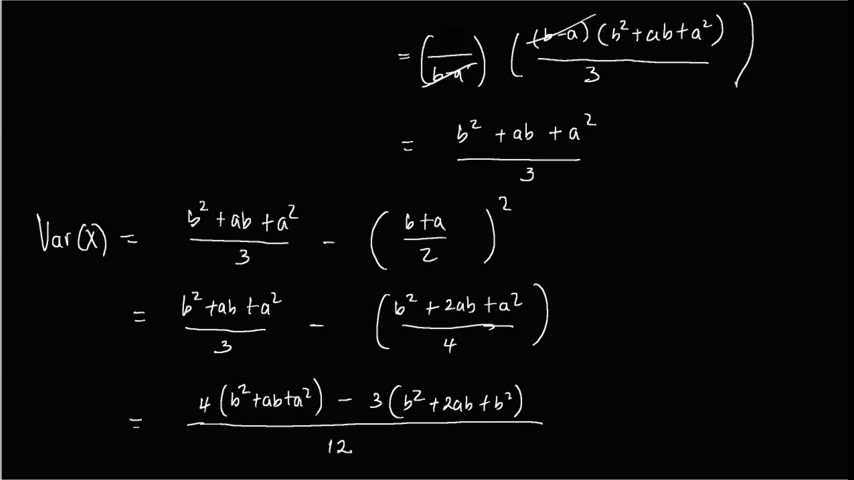 = ( / b-a ) ( (b-a) (b² + ab + a²) / 3 )
= b² + ab + a² / 3
Var(X) = b² + ab + a² / 3 - ( b+a / 2 )²
= b² + ab + a² / 3 - ( b² + 2ab + a² / 4 )
= 4 (b² + ab + a²) - 3 (b² + 2ab + b²) / 12